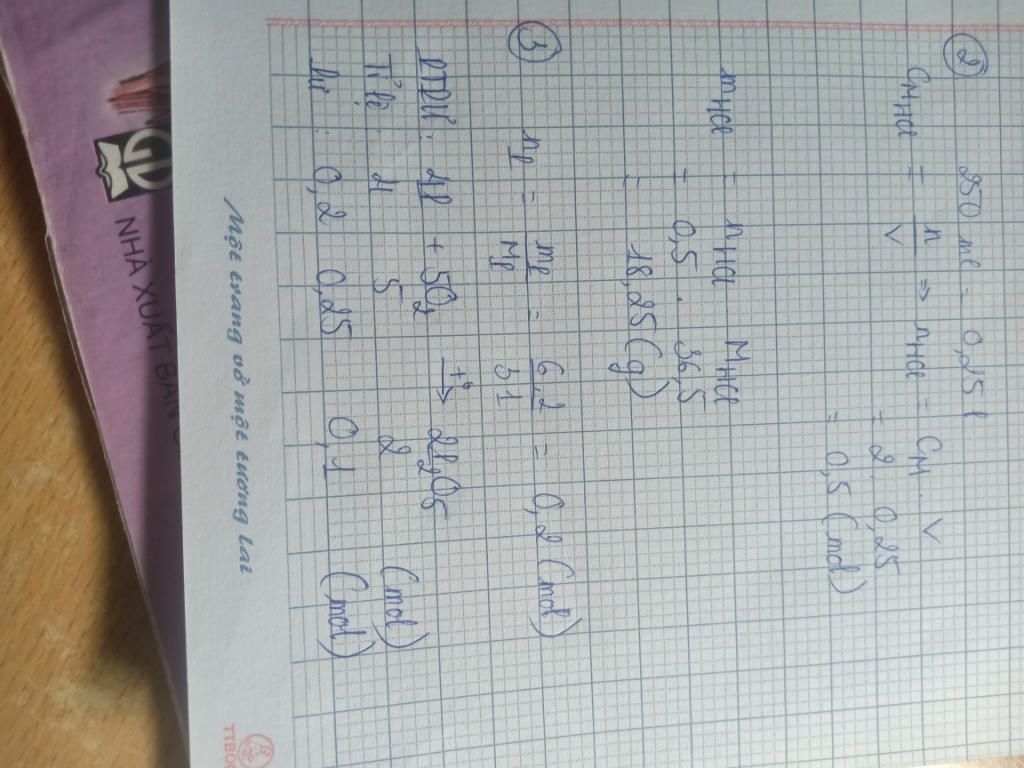 ② 250 ml = 0,25 l
C_M HCl = n/V ⇒ n HCl = C_M . V
= 2 . 0,25
= 0,5 (mol)
m HCl = n HCl . M HCl
= 0,5 . 36,5
= 18,25 (g)
③ n_P = m_P/M_P = 6,2/31 = 0,2 (mol)
PTPH : 4P + 5O₂ —t°→ 2P₂O₅
Tỉ lệ : 4 5 2 (mol)
: 0,2 0,25 0,1 (mol)
Một trang vở một tương lai
NHÀ XUẤT BẢN G